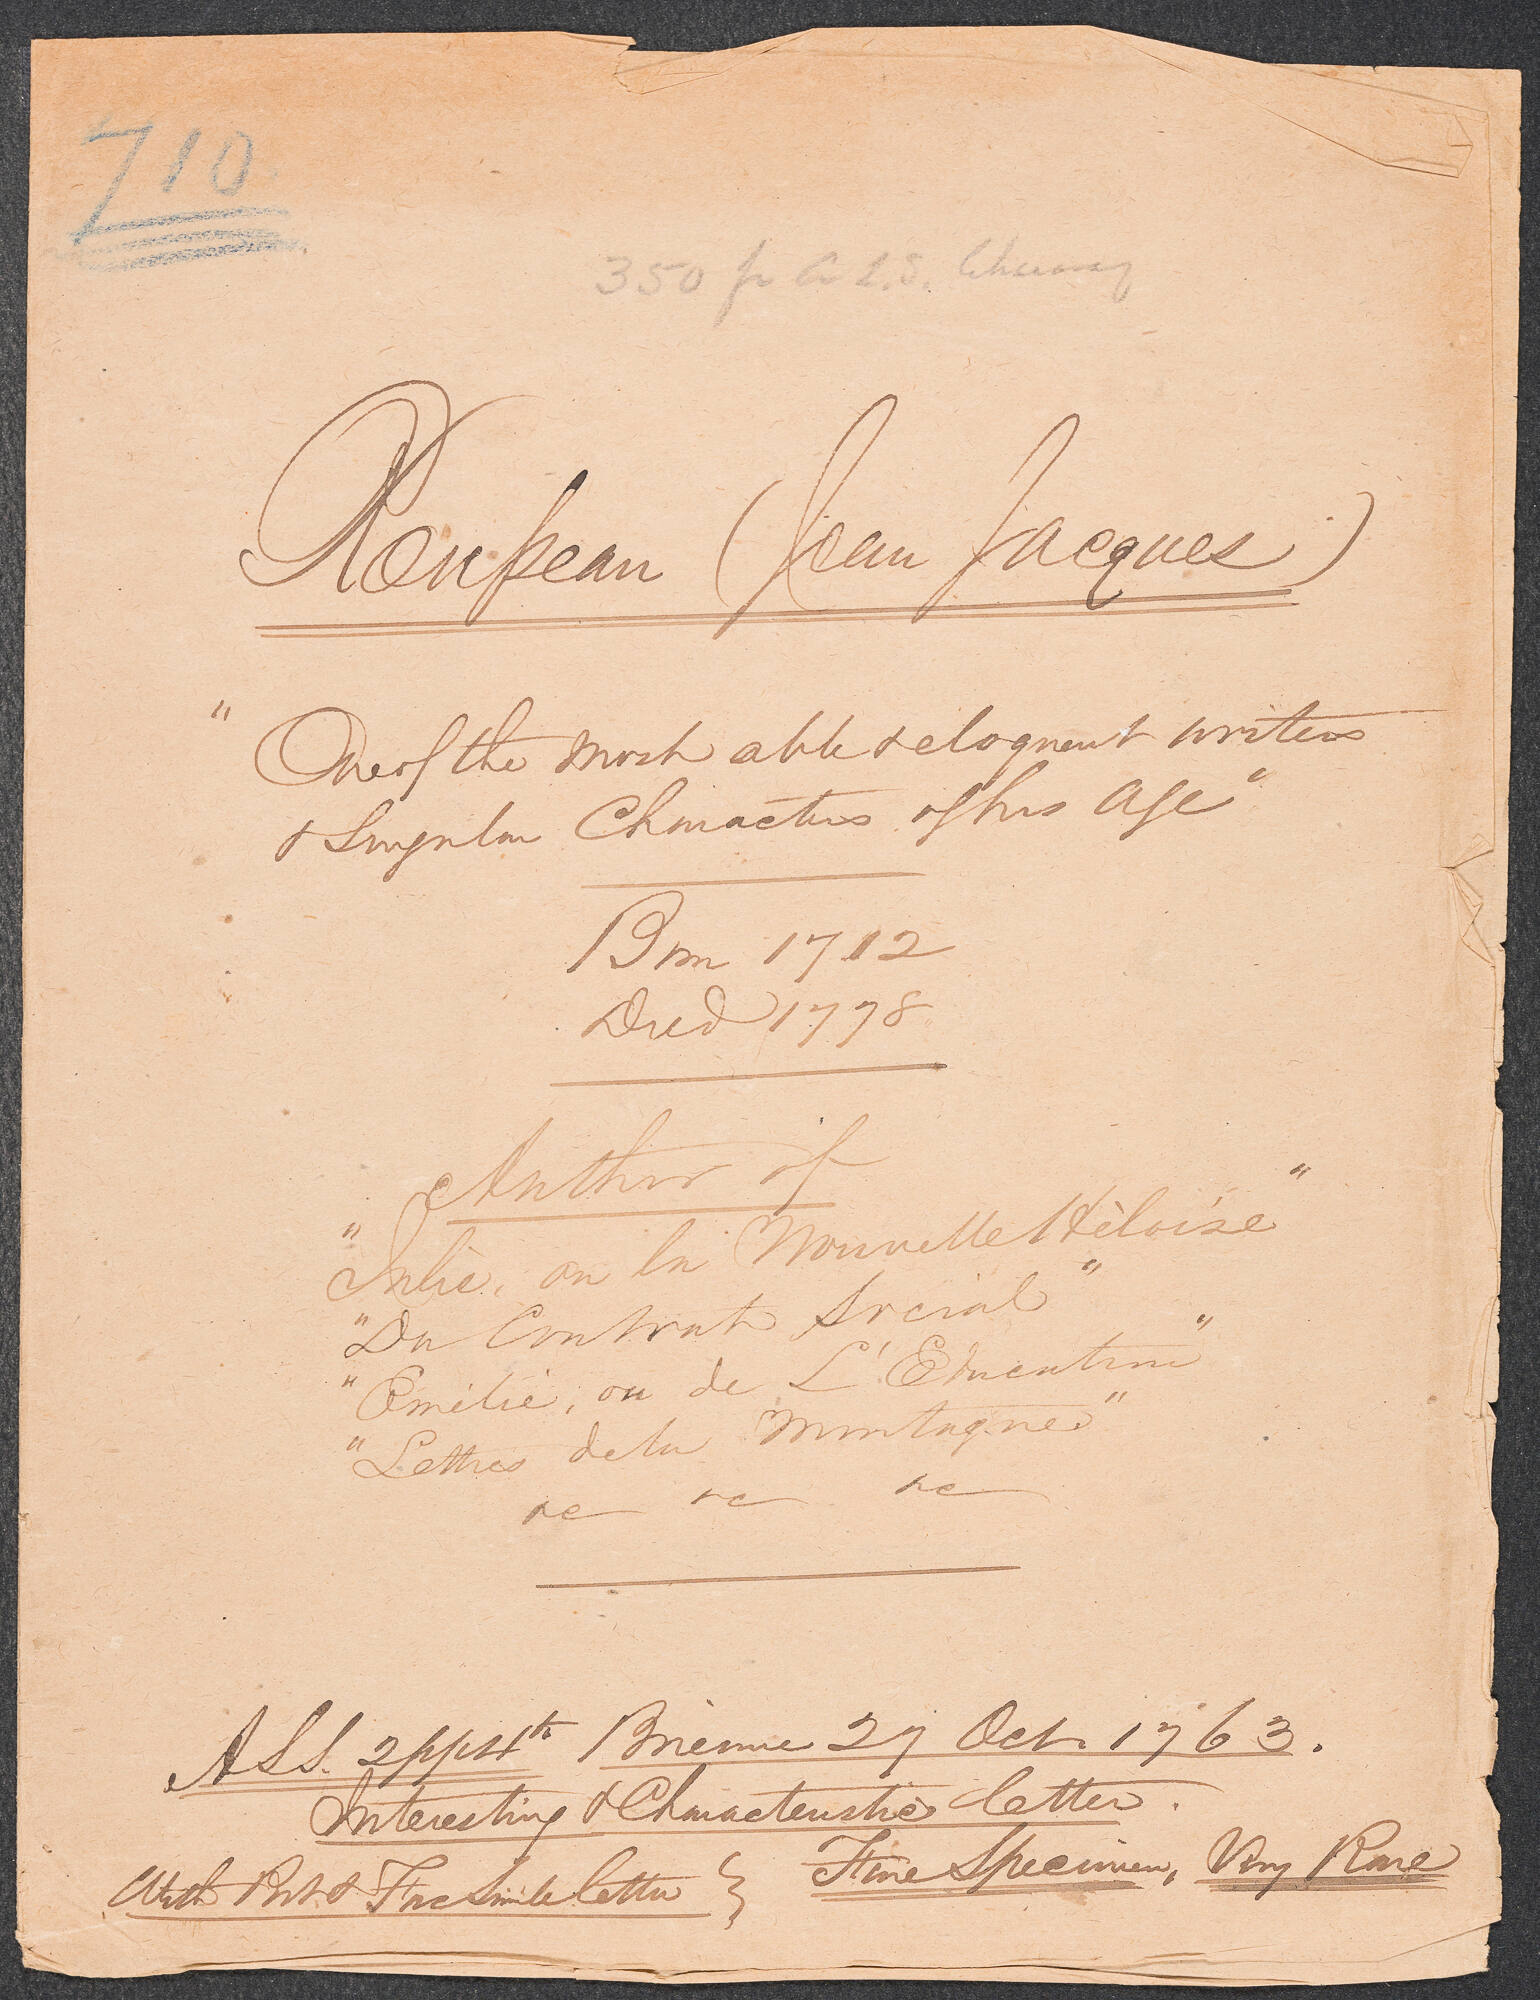 710
350 fr A.L.S. Charavay
Rousseau (Jean Jacques)
"One of the most able & eloquent writers
& Singular Characters of his Age"
Born 1712
Died 1778
Author of
"Julie, ou la Nouvelle Hèloise"
"Du Contrat Social"
"Emilie, ou de L'Education"
"Lettres de la Montagne"
&c &c &c
A L S. 2pp 4to Brienne 27 Oct 1763.
Interesting & Characteristic letter.
With Port & Fac Simile letter } Fine Specimen, Very Rare